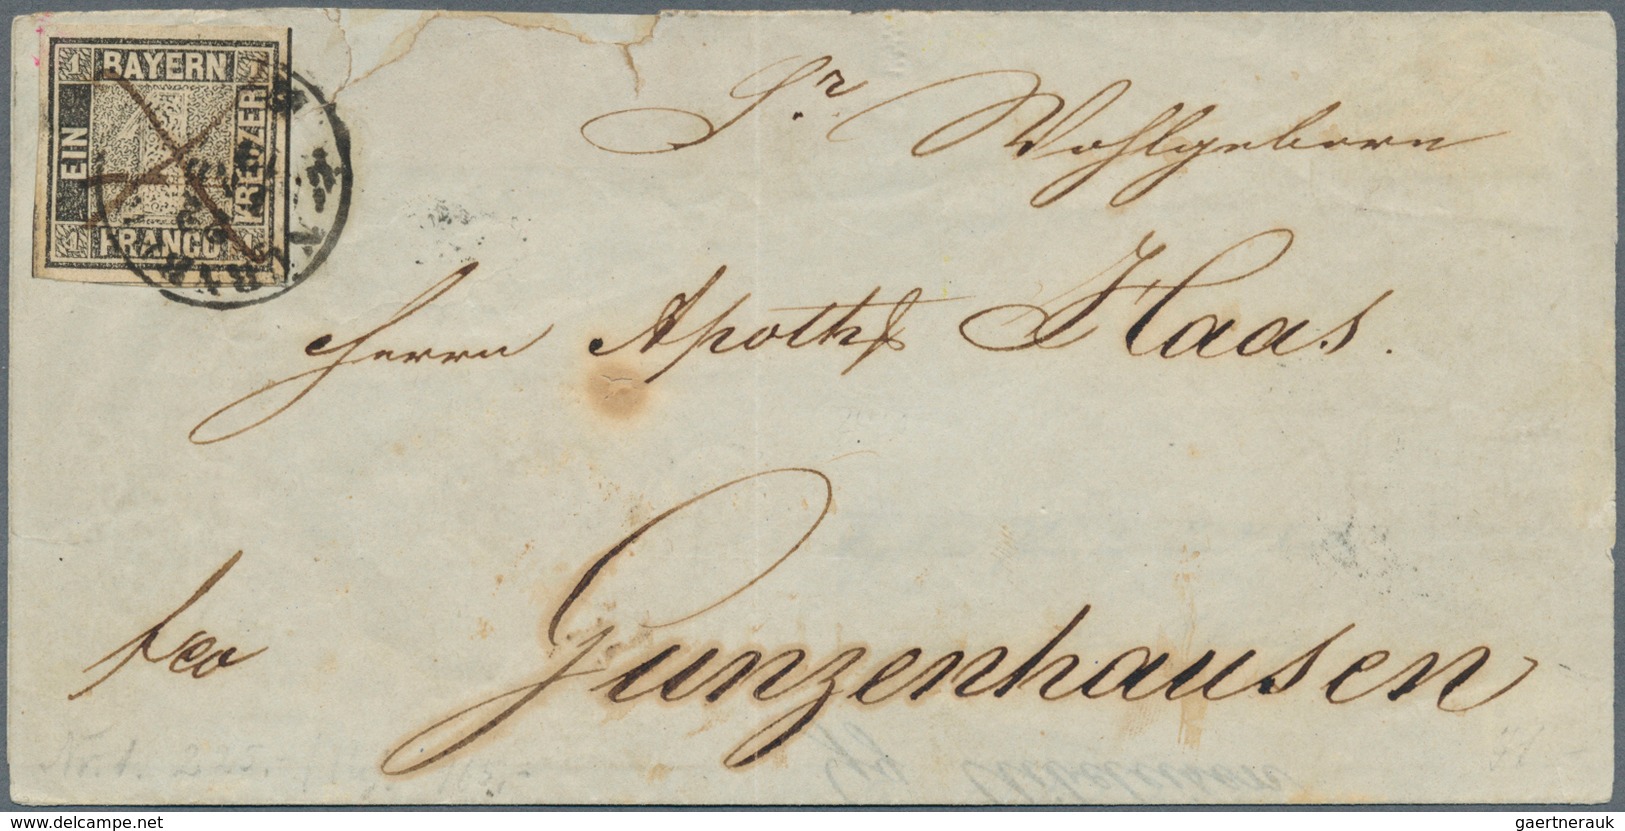 1 BAYERN 1
EIN
KREUZER
1 FRANCO 1
Sr Wohlgeborn
Herrn Apoth. Haas.
fco Gunzenhausen
www.delcampe.net
gaertnerauk